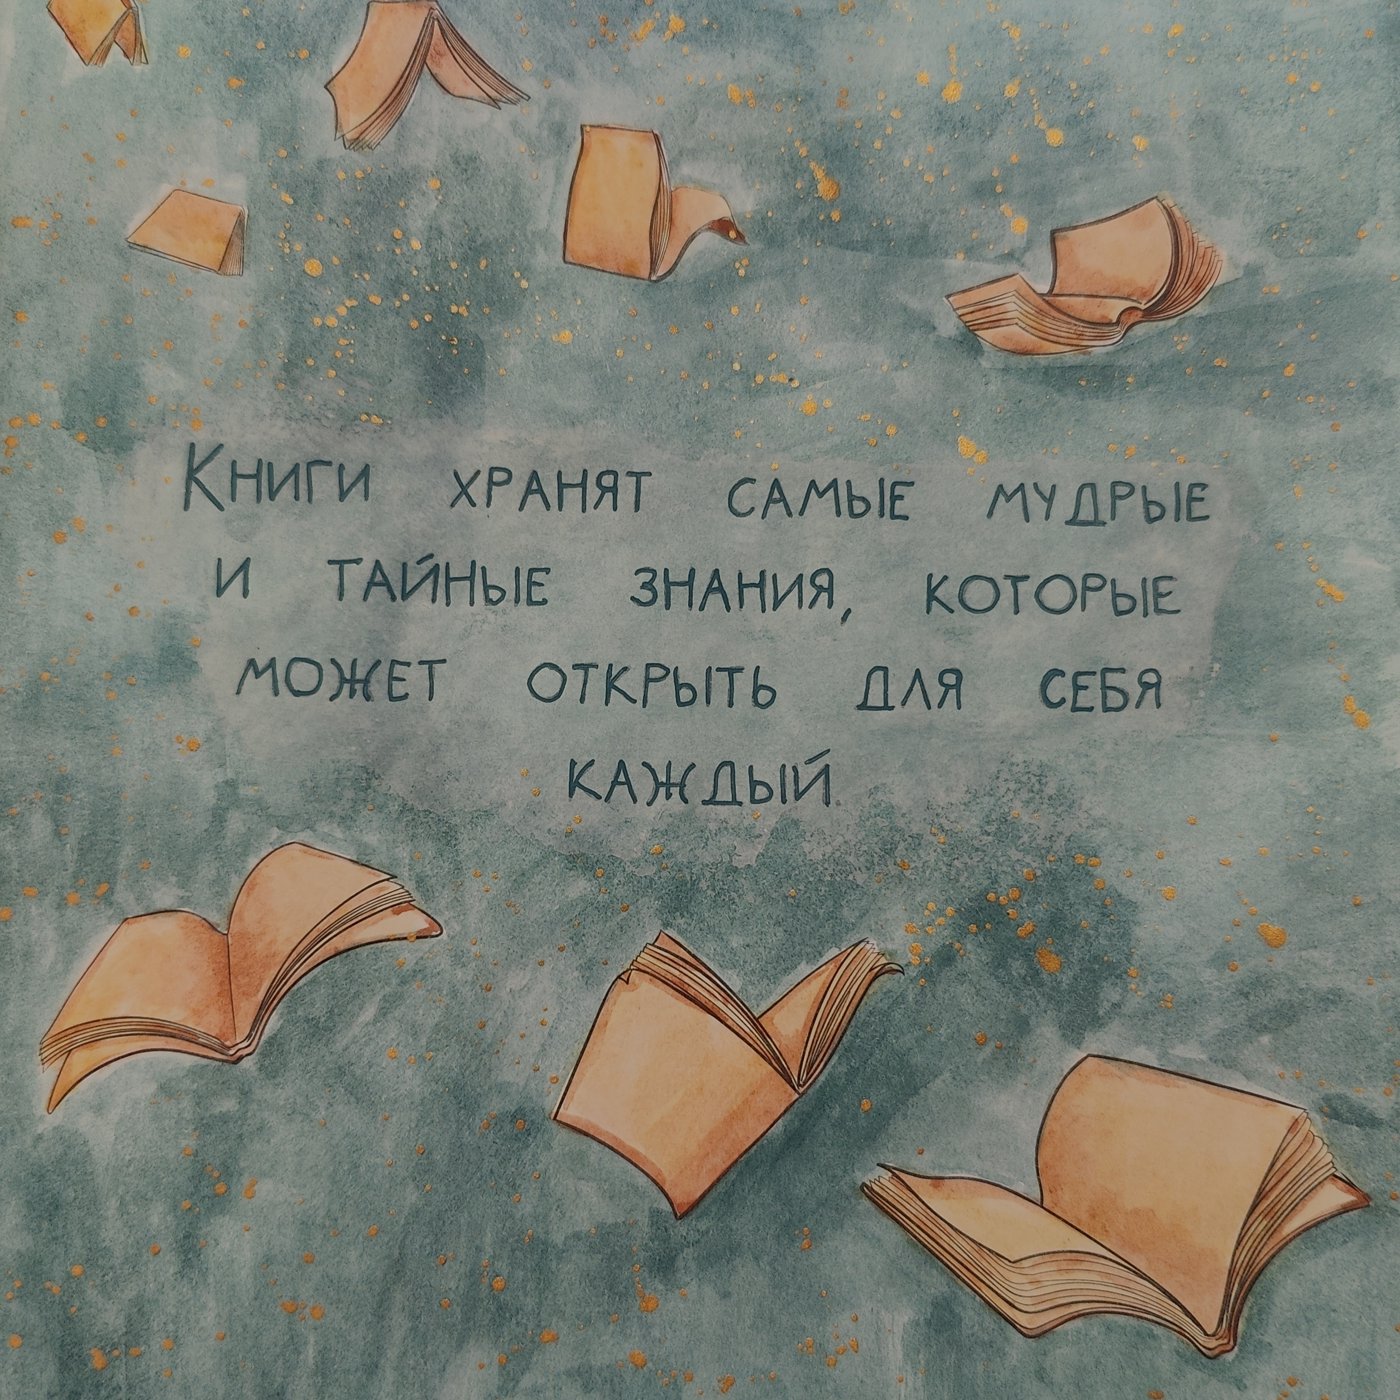 Книги хранят самые мудрые
и тайные знания, которые
может открыть для себя
каждый.